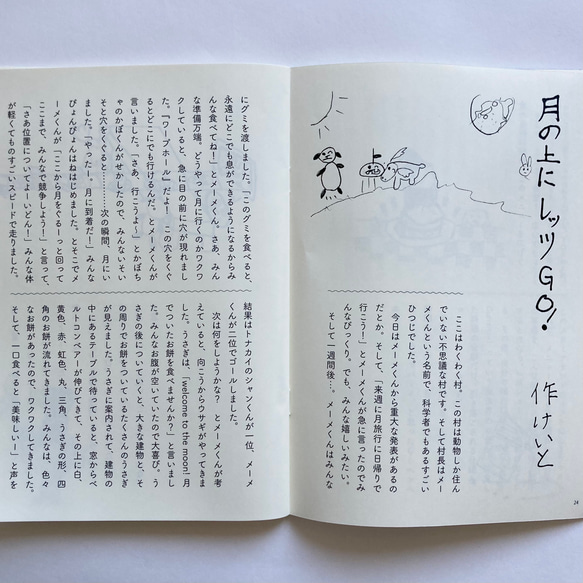 月の上にレッツGO!
作 けいと
ここはわくわく村。この村は動物しか住ん
でいない不思議な村です。そして村長はメー
メくんという名前で、科学者でもあるすごい
ひつじでした。
今日はメーメくんから重大な発表があるの
だとか。そして、「来週に月旅行に日帰りで
行こう!」とメーメくんが急に言ったのでみ
んなびっくり。でも、みんな嬉しいみたい。
そして一週間後…。メーメくんはみんな
24
にグミを渡しました。「このグミを食べると、
永遠にどこでも息ができるようになるからみ
んな食べてね!」とメーメくん。さあ、みん
な準備万端。どうやって月に行くのかワクワ
クしていると、急に目の前に穴が現れまし
た。「ワープホールだよ!この穴をくぐ
るとどこにでも行けるんだ。」とメーメくんが
言いました。「さあ、行こうよ〜」とかぼち
ゃのかぼくんがせかしたので、みんないそい
そと穴をくぐると…………次の瞬間、月にい
ました。「やったー。月に到着だ!」みんな
ぴょんぴょんはねはじめました。とそこでメ
ーメくんが「ここから月をぐるーっと回って
ここまで、みんなで競争しよう!」と言って、
「さあ位置についてよーいどん!」みんな体
が軽くてものすごいスピードで走りました。
結果はトナカイのシャンくんが一位、メーメ
くんが二位でゴールしました。
次は何をしようかな?とメーメくんが考
えていると、向こうからウサギがやってきま
した。うさぎは、「welcome to the moon! 月
でついたお餅を食べませんか?」と言いまし
た。みんなお腹が空いていたので大喜び。う
さぎの後についていくと、大きな建物と、そ
の周りでお餅をついているたくさんのうさぎ
が見えました。うさぎに案内されて、建物の
中にあるテーブルで待っていると、窓からベ
ルトコンベアーが伸びてきて、その上に白、
黄色、赤、虹色、丸、三角、うさぎの形、四
角のお餅が流れてきました。みんなは、色々
なお餅があったので、ワクワクしてきました。
そして、一口食べると「美味しいー」と声を